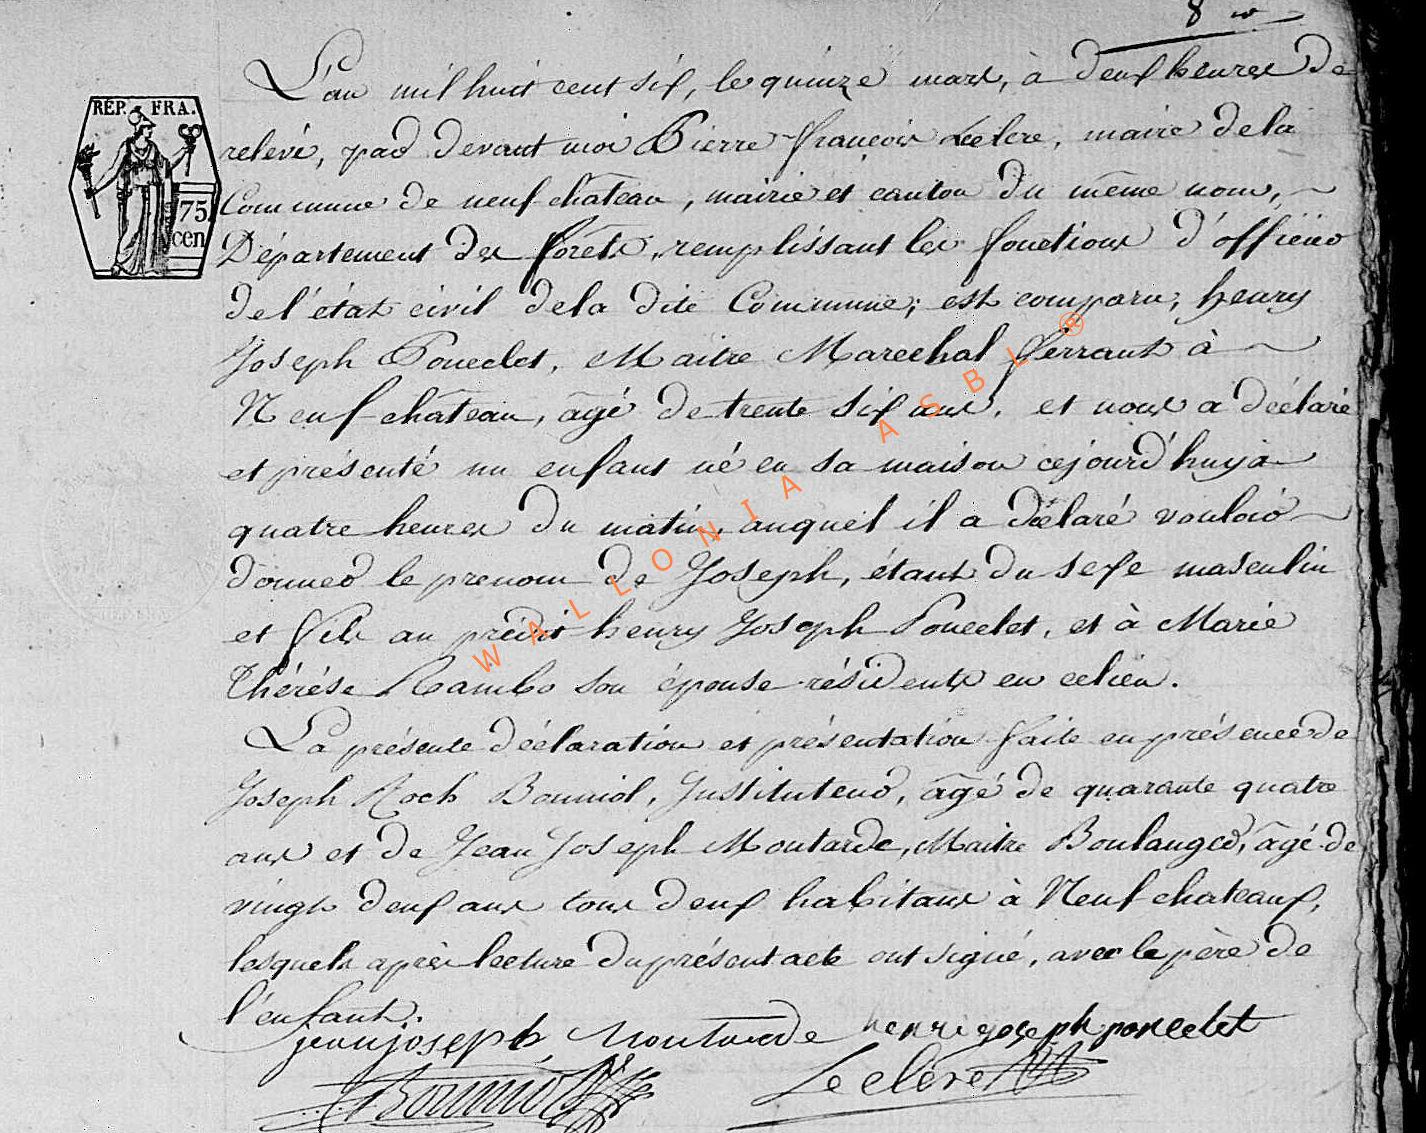 8
L'an mil huit cent six, le quinze mars, à deux heures de
RÉP. FRA.
relevé, par devant moi Pierre françois Leclere, maire dela
75 cen
Commune de neufchâteau, mairie et canton du même nom,
Département des forêts, remplissant les fonctions d'officier
de l'état civil dela dite Commune; est comparu, henry
Joseph Poncelet, Maitre Marechal ferrant à
Neufchâteau, âgé de trente six ans, et nous a déclaré
et présenté un enfant né en sa maison cejourd'huy à
quatre heures du matin, auquel il a déclaré vouloir
donner le prenom de Joseph, étant du sexe masculin
et fils au prédit henry Joseph Poncelet, et à Marie
thérése Rambo son épouse résidents en celieu.
La présente déclaration et présentation faite en présence de
Joseph Roch Bonniol, Instituteur, âgé de quarante quatre
ans et de Jean Joseph Moutarde, Maitre Boulanger, âgé de
vingt deux ans tous deux habitans à Neufchateaux,
lesquels après lecture du présent acte ont signé, avec le père de
l'enfant.
jean joseph Moutarde henri joseph poncelet
Bonniol Leclére
WALLONIA ASBL ®